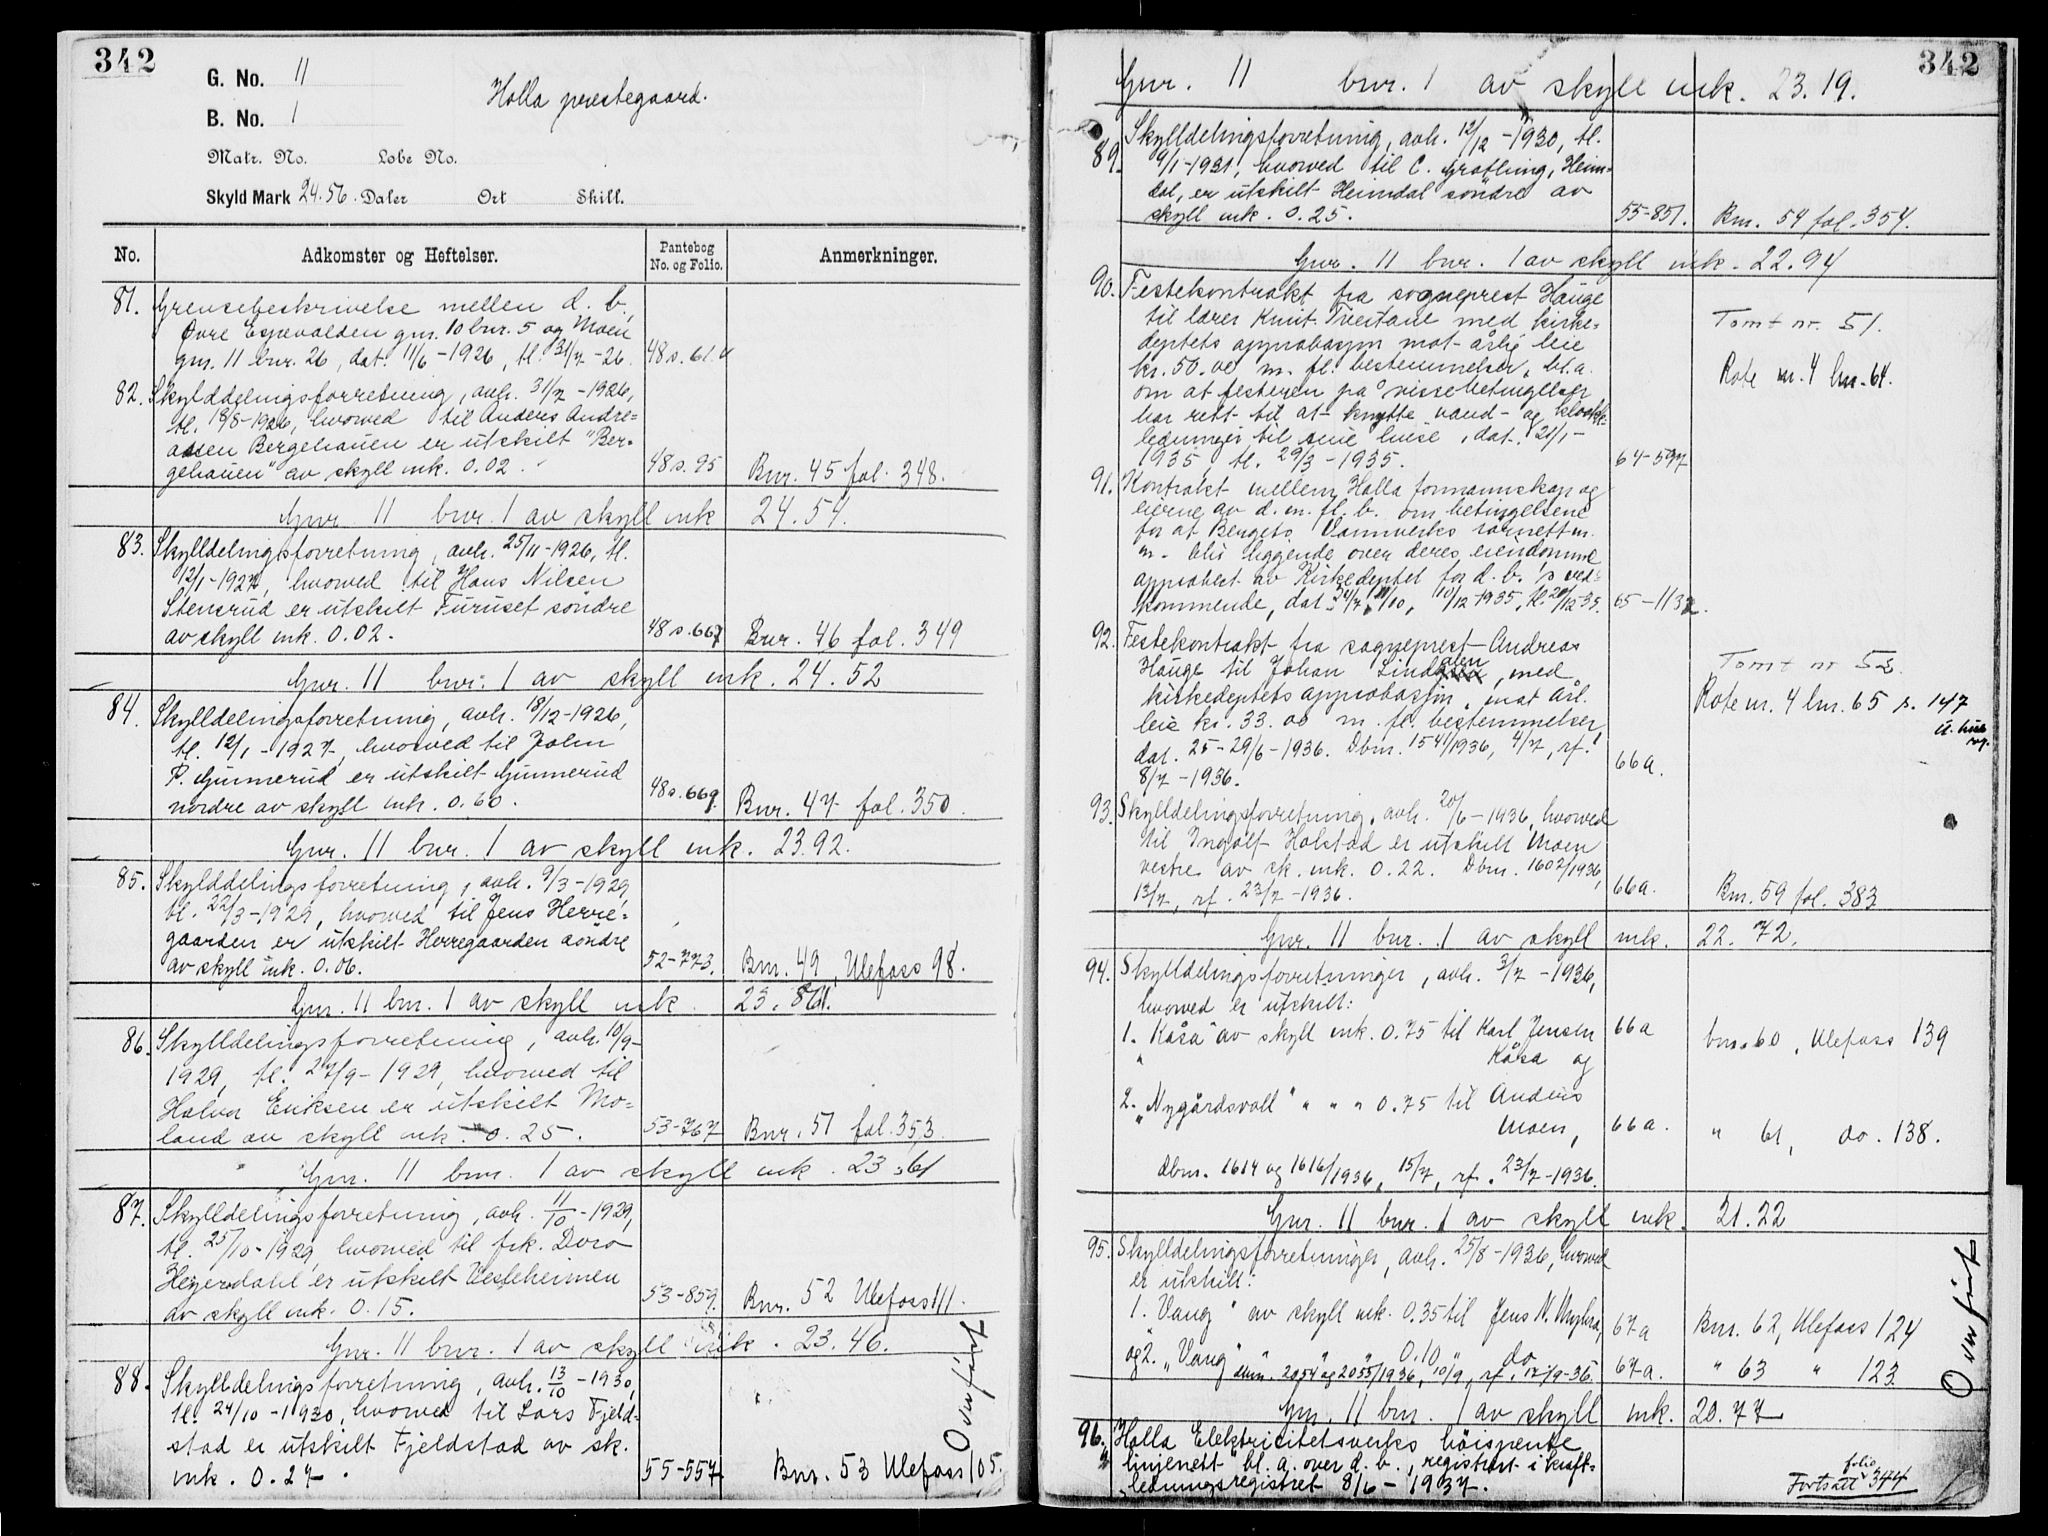 342
G. No. 11
Holla prestegaard.
B. No. 1
Matr. No. Lobe No.
Skyld Mark 24.56. Daler Ort Skill.
No. Adkomster og Heftelser. Pantebog No. og Folio. Anmerkninger.
81. Grensebeskrivelse mellem d. b.,
Øvre gnr. 10 bnr. 5 og Moen
gnr. 11 bnr. 26, dat. 11/6-1926, tl. 31/7-26. 48 s. 61.
82. Skylddelingsforretning, avh. 31/7-1926,
tl. 18/8-1926, hvorved til Anders Andre=
assen Bergehauen er utskilt "Ber-
gehauen" av skyll mk. 0.02. 48 s. 95 Bnr. 45 fol. 348.
Gnr. 11 bnr. 1 av skyll mk 24.54.
83. Skylldelingsforretning, avh. 25/11-1926, tl.
12/1-1927, hvorved til Hans Nilsen
Stensrud er utskilt Furuset søndre
av skyll mk. 0.02. 48 s. 667 Bnr. 46 fol. 349
Gnr. 11 bnr. 1 av skyll mk. 24.52
84. Skylldelingsforretning, avh. 18/12-1926,
tl. 12/1-1927, hvorved til John
P. Gunnerud er utskilt Gunnerud
nordre av skyll mk. 0.60. 48 s. 669. Bnr. 47 fol. 350.
Gnr. 11 bnr. 1 av skyll mk. 23.92.
85. Skylddelingsforretning, avh. 9/3-1929,
tl. 22/3-1929, hvorved til Jens Herre-
gaarden er utskilt Herregaarden søndre
av skyll mk. 0.06. 52-773. Bnr. 49, Ulefoss 98.
Gnr. 11 bnr. 1 av skyll mk. 23.86.
86. Skylldelingsforretning, avh. 10/9-
1929, tl. 27/9-1929, hvorved til
Halvor Eriksen er utskilt Mo=
land av skyll mk. 0.25. 53-767 Bnr. 51 fol. 353.
Gnr. 11 bnr. 1 av skyll mk. 23.61
87. Skylldelingsforretning, avh. 11/10-1929,
tl. 25/10-1929, hvorved til frk. Doro
Heyerdahl er utskilt Vesleheimen
av skyll mk. 0.15. 53-859. Bnr. 52 Ulefoss 111.
Gnr. 11 bnr. 1 av skyll mk. 23.46.
88. Skylldelingsforretning, avh. 13/10-1930,
tl. 24/10-1930, hvorved til Lars Fjeld-
stad er utskilt Fjeldstad av sk.
mk. 0.27. 55-557. Bnr. 53 Ulefoss 105.
Overført
342
Gnr. 11 bnr. 1 av skyll mk. 23.19.
89. Skylldelingsforretning, avh. 12/12-1930, tl.
9/1-1931, hvorved til C. Grøtling, Heim-
dal, er utskilt Heimdal søndre av
skyll mk. 0.25. 55-851. Bnr. 54 fol. 354.
Gnr. 11 bnr. 1 av skyll mk. 22.94
90. Festekontrakt fra sogneprest Hauge
til lærer Knut Tveitane med kirke=
deptets approbasjon mot årlig leie
kr. 50.00 m. fl. bestemmelser, bl. a.
om at festeren på visse betingelser
har rett til at knytte vand- og kloakk-
ledninger til sine huse, dat. 21/1-
1935 tl. 29/3-1935. 64-597
Tomt nr. 51.
Rote nr. 4 lnr. 64.
91. Kontrakt mellem Holla formannskap og
eierne av d. m. fl. b. om betingelsene
for at Bergets Vannverks rørnett m.
m. blir liggende over deres eiendomme
approbert av Kirkedeptet for d. b.'s ved-
kommende, dat. 24/7, /10, 10/12-1935, tl. 20/12-35. 65-1132.
92. Festekontrakt fra sogneprest Andreas
Hauge til Johan Lindalen, med
kirkedeptets approbasjon, mot årl.
leie kr. 33.00 m. fl. bestemmelser
dat. 25-29/6-1936. Dbnr. 1541/1936, 4/7, rf.
8/7-1936. 66a.
Tomt nr 52.
Rote nr. 4 lnr. 65 s. 147
93. Skylldelingsforretning, avh. 20/6-1936, hvorved
til Ingolf Holstad er utskilt Moen
vestre av sk. mk. 0.22. Dbnr. 1602/1936,
13/7, rf. 23/7-1936. 66a. Bnr. 59 fol. 383
Gnr. 11 bnr. 1 av skyll mk. 22.72.
94. Skylldelingsforretninger, avh. 3/7-1936,
hvorved er utskilt:
1. "Kåsa" av skyll mk. 0.75 til Karl Jensen 66a bnr. 60, Ulefoss 139
Kåsa og
2. "Nygårdsvoll" " " " 0.75 til Anders
Moen, 66a. " 61, do. 138.
Dbnr. 1614 og 1616/1936, 15/7, rf. 23/7-1936.
Gnr. 11 bnr. 1 av skyll mk. 21.22
95. Skylldelingsforretninger, avh. 25/8-1936, hvorved
er utskilt:
1. "Vang" av skyll mk. 0.35 til Jens N. Myhra, 67a Bnr. 62, Ulefoss 124
og 2. "Vang" " " 0.10 " do
dbnr. 2054 og 2055/1936, 10/9, rf. 17/9-36. 67a. " 63 " 123
Gnr. 11 bnr. 1 av skyll mk. 20.77
96. Holla Elektricitetsverks høispente
linjenett bl. a. over d. b., registrert i kraft=
ledningsregistret 8/6-1937.
Overført
Fortsatt folio 344